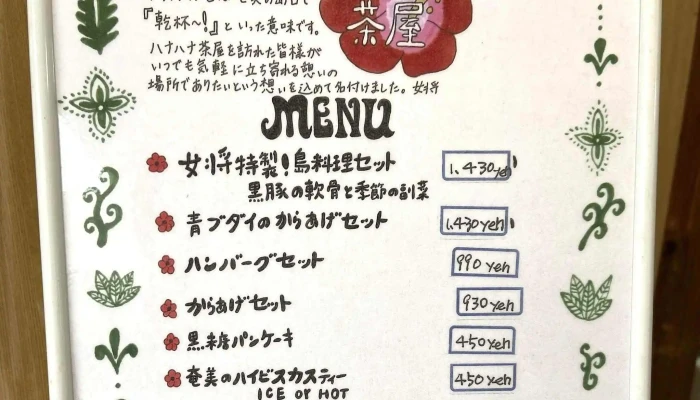 『乾杯〜!』といった意味です。
ハナハナ茶屋を訪れた皆様が
いつでも気軽に立ち寄れる憩いの
場所でありたいという想いを込めて名付けました。女将
茶屋
MENU
女将特製!島料理セット 1,430yen
黒豚の軟骨と季節の副菜
青ブダイのからあげセット 1,430yen
ハンバーグセット 990yen
からあげセット 930yen
黒糖パンケーキ 450yen
奄美のハイビスカスティー 450yen
ICE or HOT